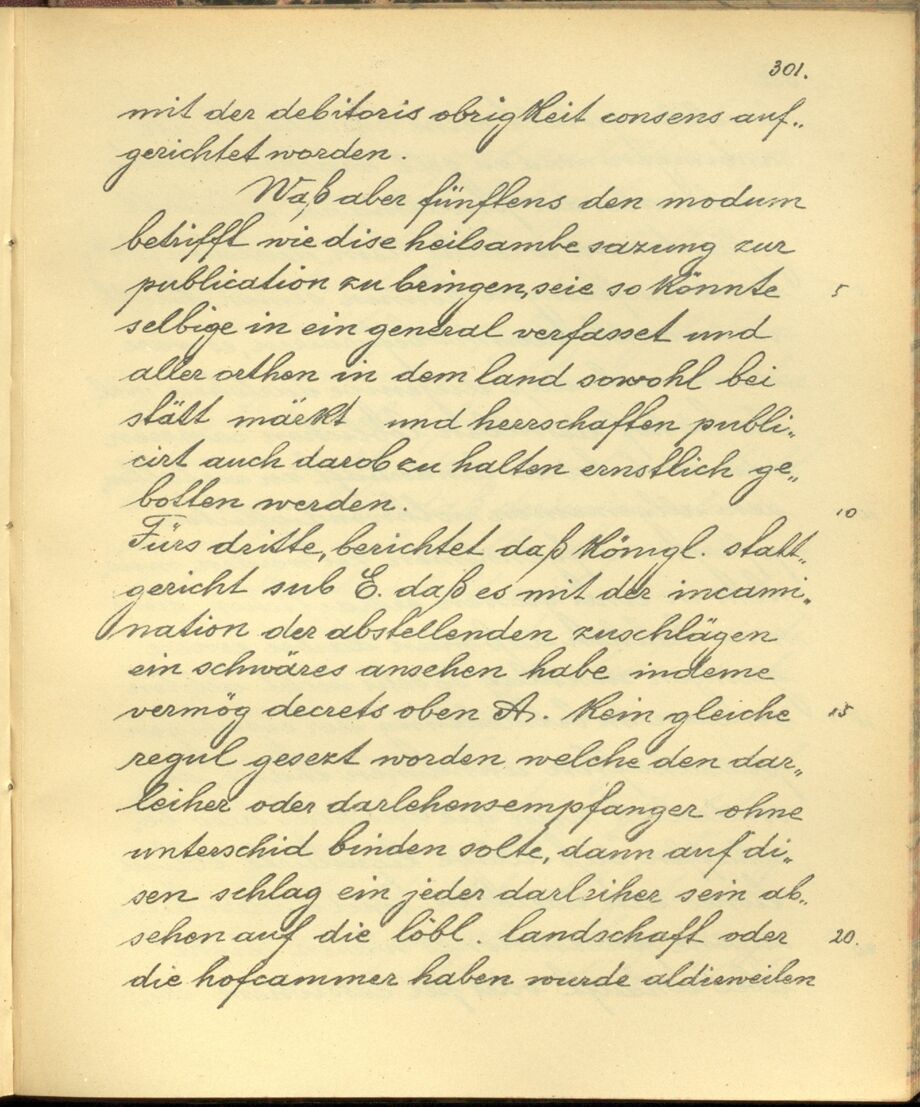 301.
mit der debitoris obrigkeit consens auf„
gerichtet worden.
Waß aber fünftens den modum
betrifft wie dise heilsambe sazung zur
publication zu bringen, seie so könnte 5
selbige in ein general verfasset und
aller orthen in dem land sowohl bei
stätt märkt und herrschaften publi„
cirt auch darob zu halten ernstlich ge„
botten werden. 10
Fürs dritte, berichtet daß königl. statt„
gericht sub E. daß es mit der incami„
nation der abstellenden zuschlägen
ein schwäres ansehen habe indeme
vermög decrets oben A. kein gleiche 15
regul gesezt worden welche den dar„
leiher oder darlehensempfanger ohne
unterschid binden solte, dann auf di„
sen schlag ein jeder darleiher sein ab„
sehen auf die löbl. landschaft oder 20.
die hofcammer haben wurde aldieweilen